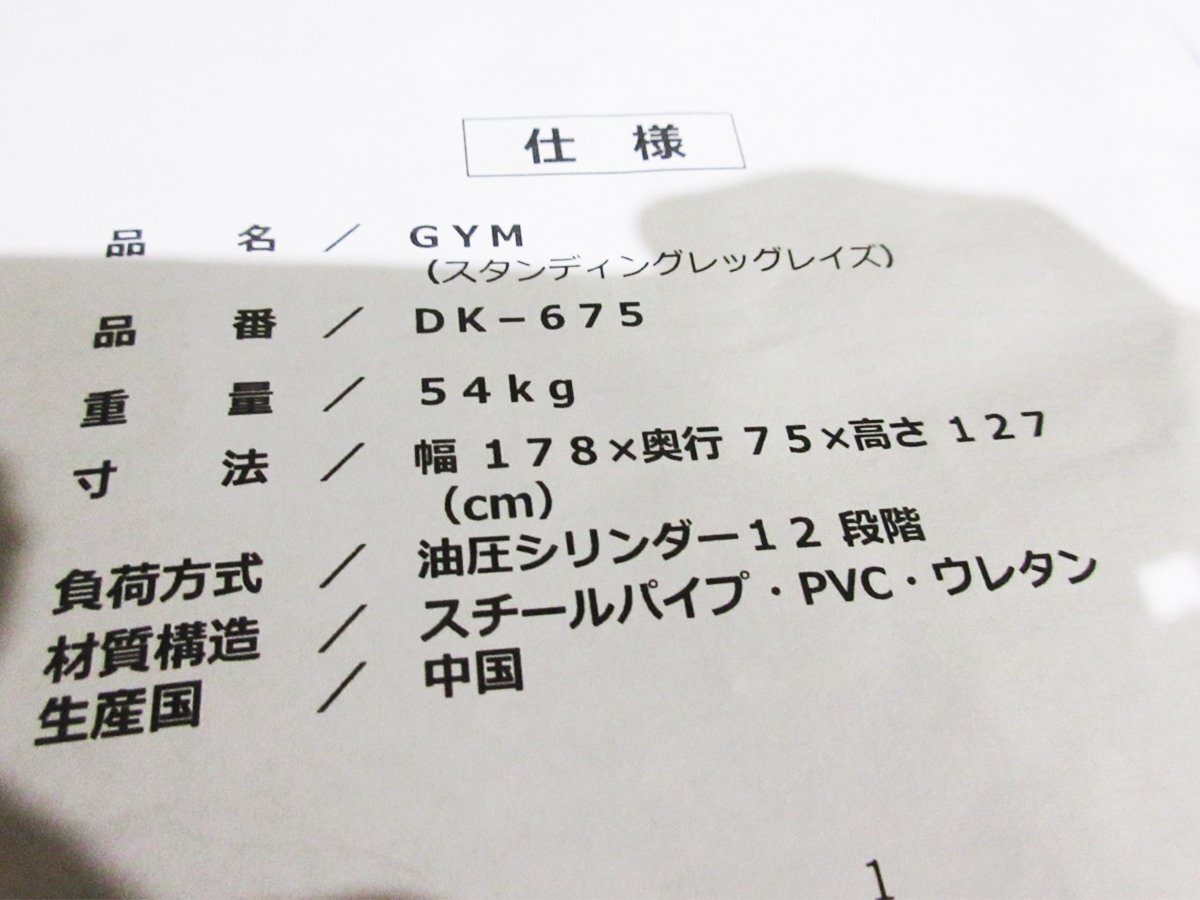 仕　様
品　名　／　ＧＹＭ
（スタンディングレッグレイズ）
品　番　／　ＤＫ－６７５
重　量　／　５４ｋｇ
寸　法　／　幅 １７８×奥行 ７５×高さ １２７
（cm）
負荷方式　／　油圧シリンダー１２ 段階
材質構造　／　スチールパイプ・PVC・ウレタン
生産国　／　中国
1